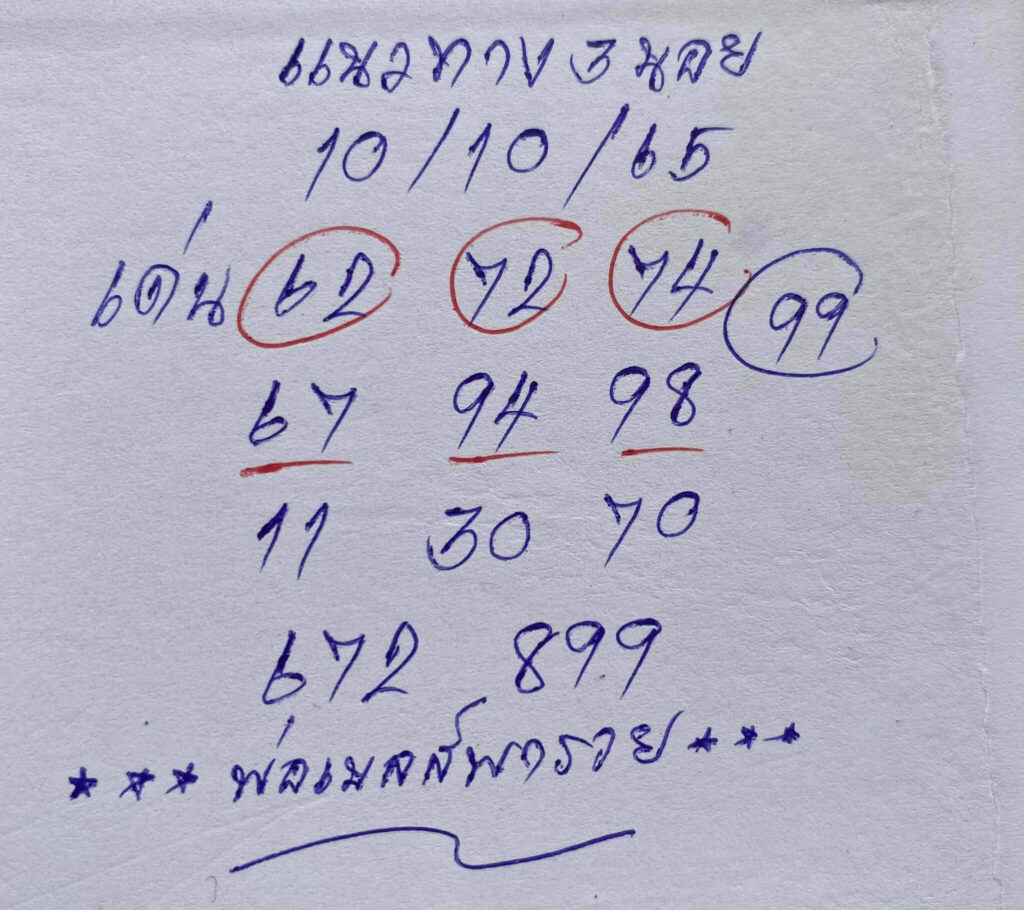 แนวทาง 3 นอย
10/10/65
เด่น 62 72 74 99
67 94 98
11 30 70
672 899
*** พ่อเมลส์พารวย ***